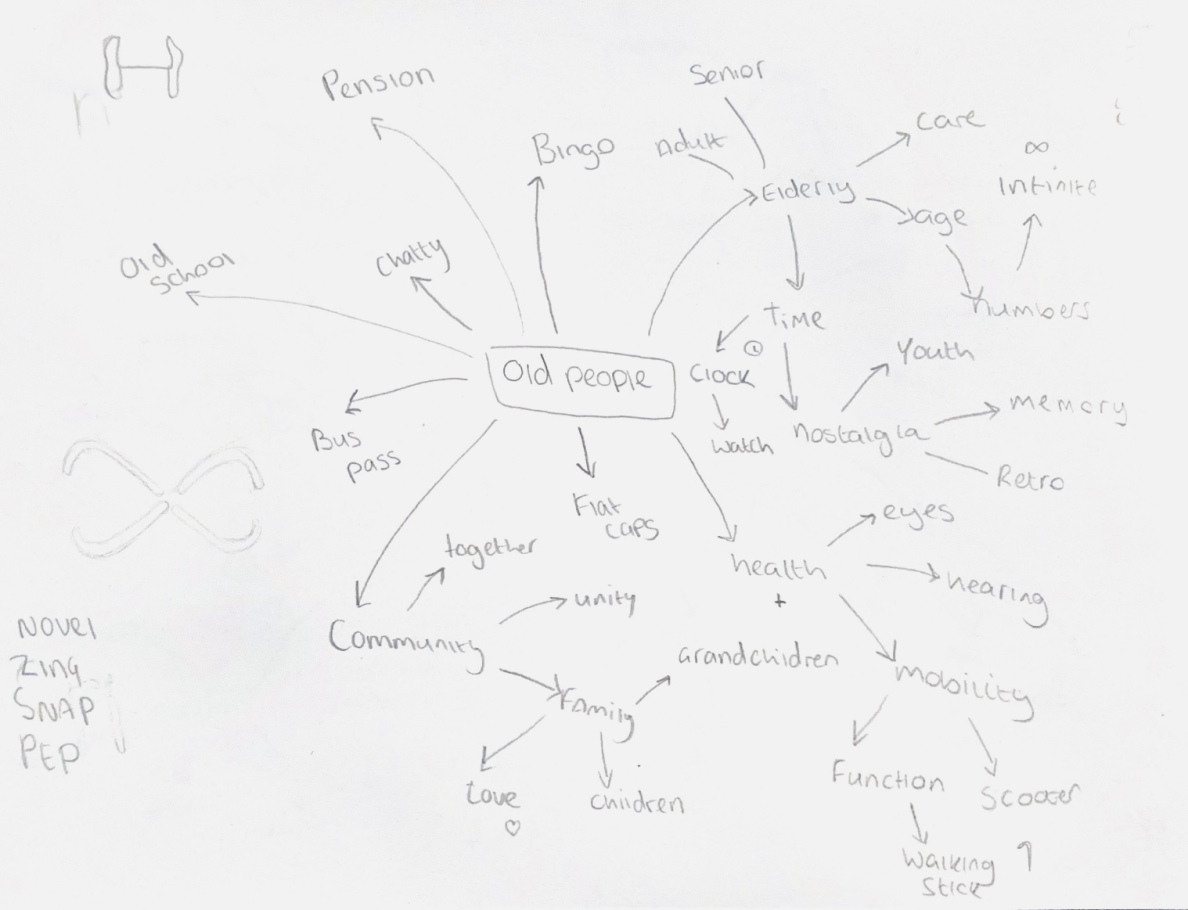 Pension
Senior
Bingo
Adult
Care
∞
Infinite
Elderly
age
Old
school
Chatty
Time
numbers
Old people
Clock
Youth
memory
watch
nostalgia
Retro
Bus
pass
Flat
caps
eyes
together
health
+
hearing
unity
Community
Grandchildren
mobility
Family
NOVEl
Zing
SNAP
PEP
Love
children
Function
Scooter
Walking
Stick